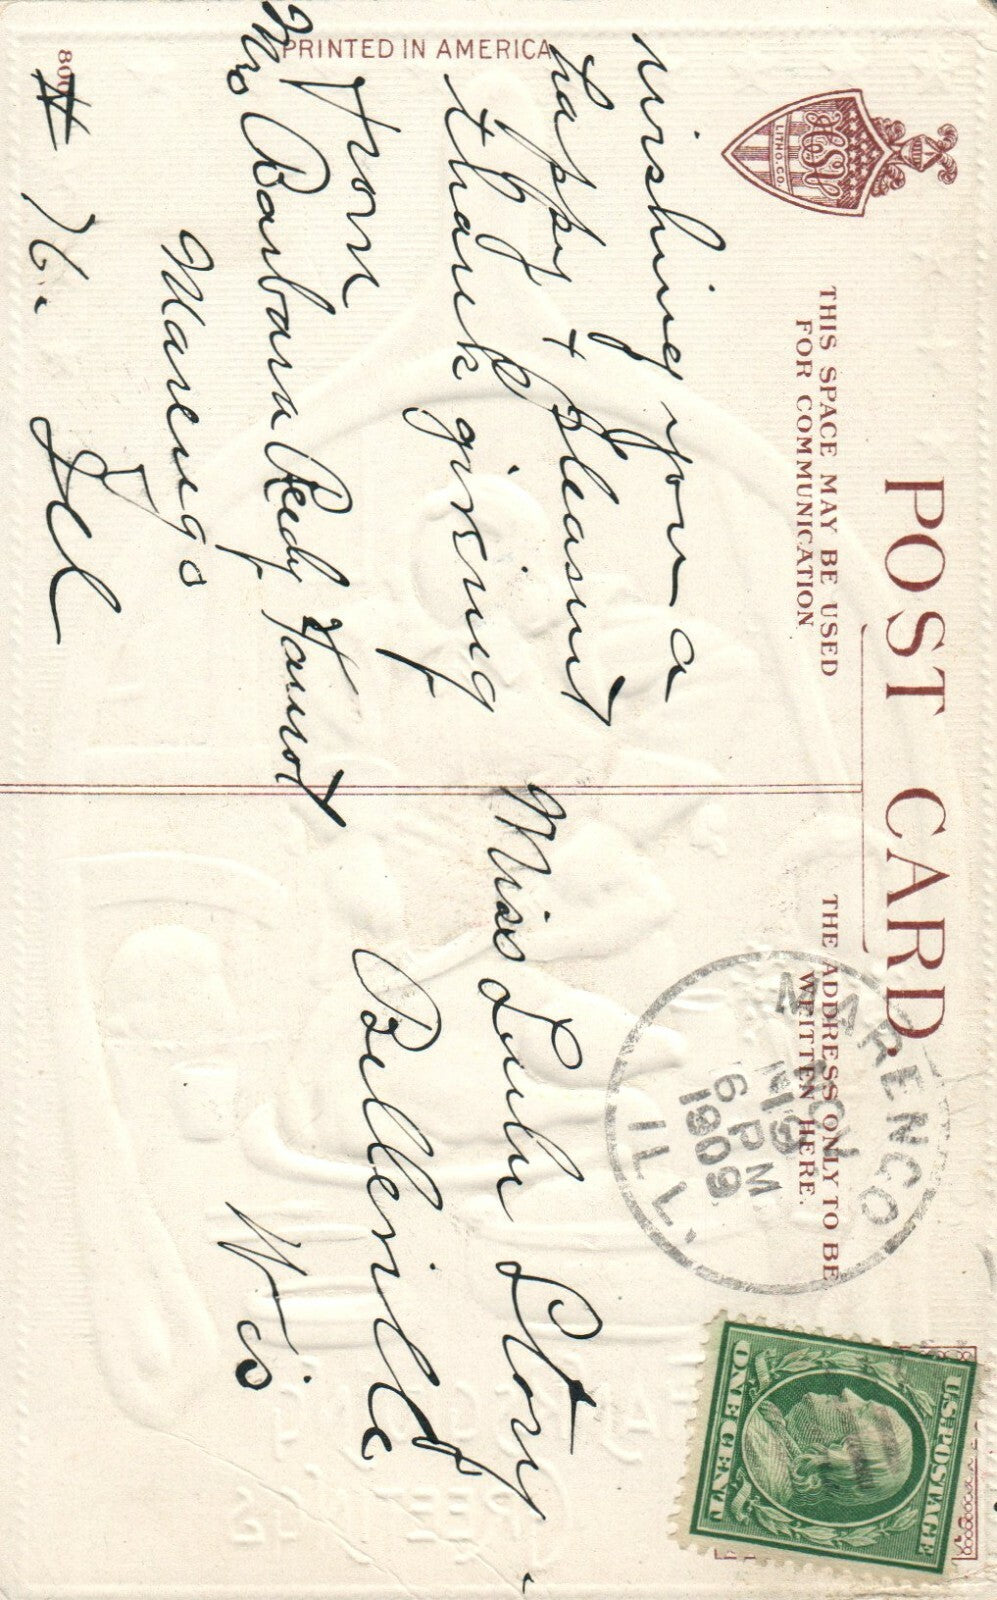 POST CARD
THIS SPACE MAY BE USED
FOR COMMUNICATION
THE ADDRESS ONLY TO BE
WRITTEN HERE.
LITHO. CO.
MARENGO
NOV
19
6 PM
1909
ILL.
U.S. POSTAGE
ONE CENT
wishing you a
happy + pleasant
thanks giving
From
Mrs Barbara Reedy
Marengo
Ill
Miss Lulu Story
Belleville
Wis
PRINTED IN AMERICA
800